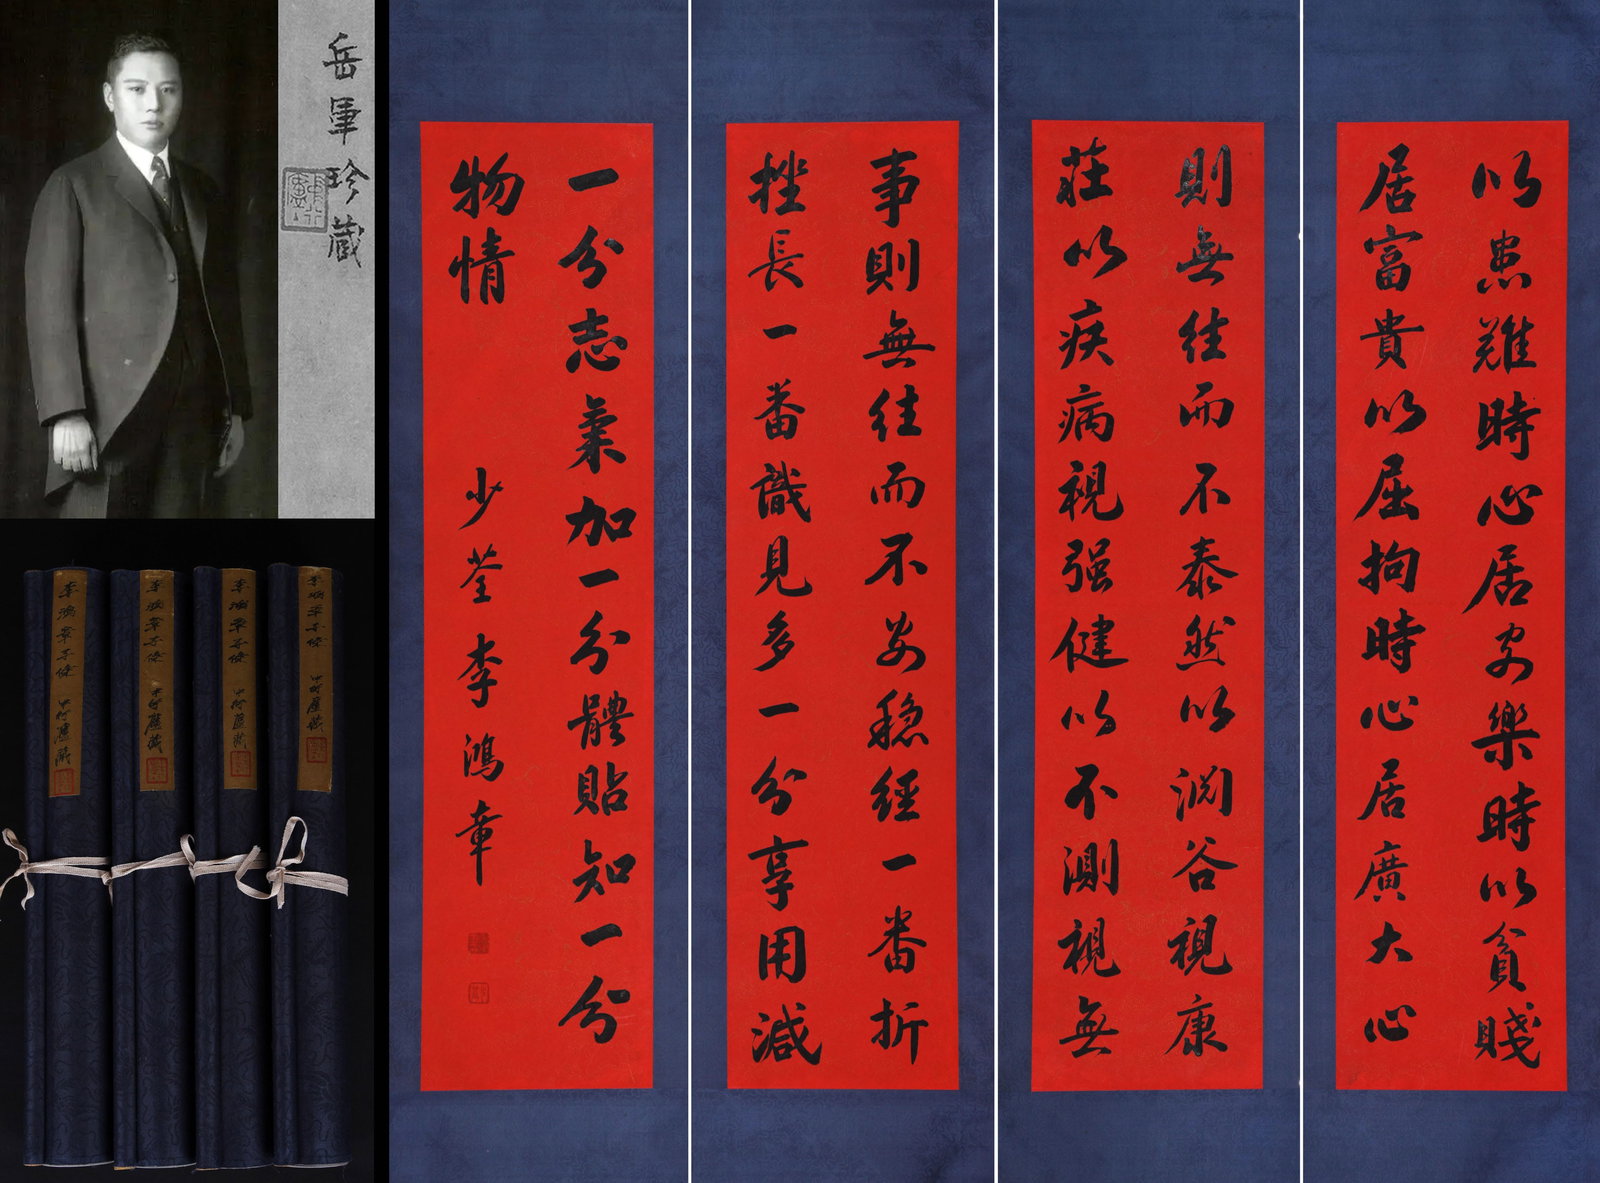 以患難時心居安樂時以貧賤
居富貴以屈拘時心居廣大心
則無往而不泰然以淵谷視康
莊以疾病視强健以不測視無
事則無往而不安穩經一番折
挫長一番識見多一分享用減
一分志氣加一分體貼知一分
物情
少荃李鴻章
岳軍珍藏
李鴻章字條 中行廬藏
李鴻章字條 中行廬藏
李鴻章字條 中行廬藏
李鴻章字條 中行廬藏